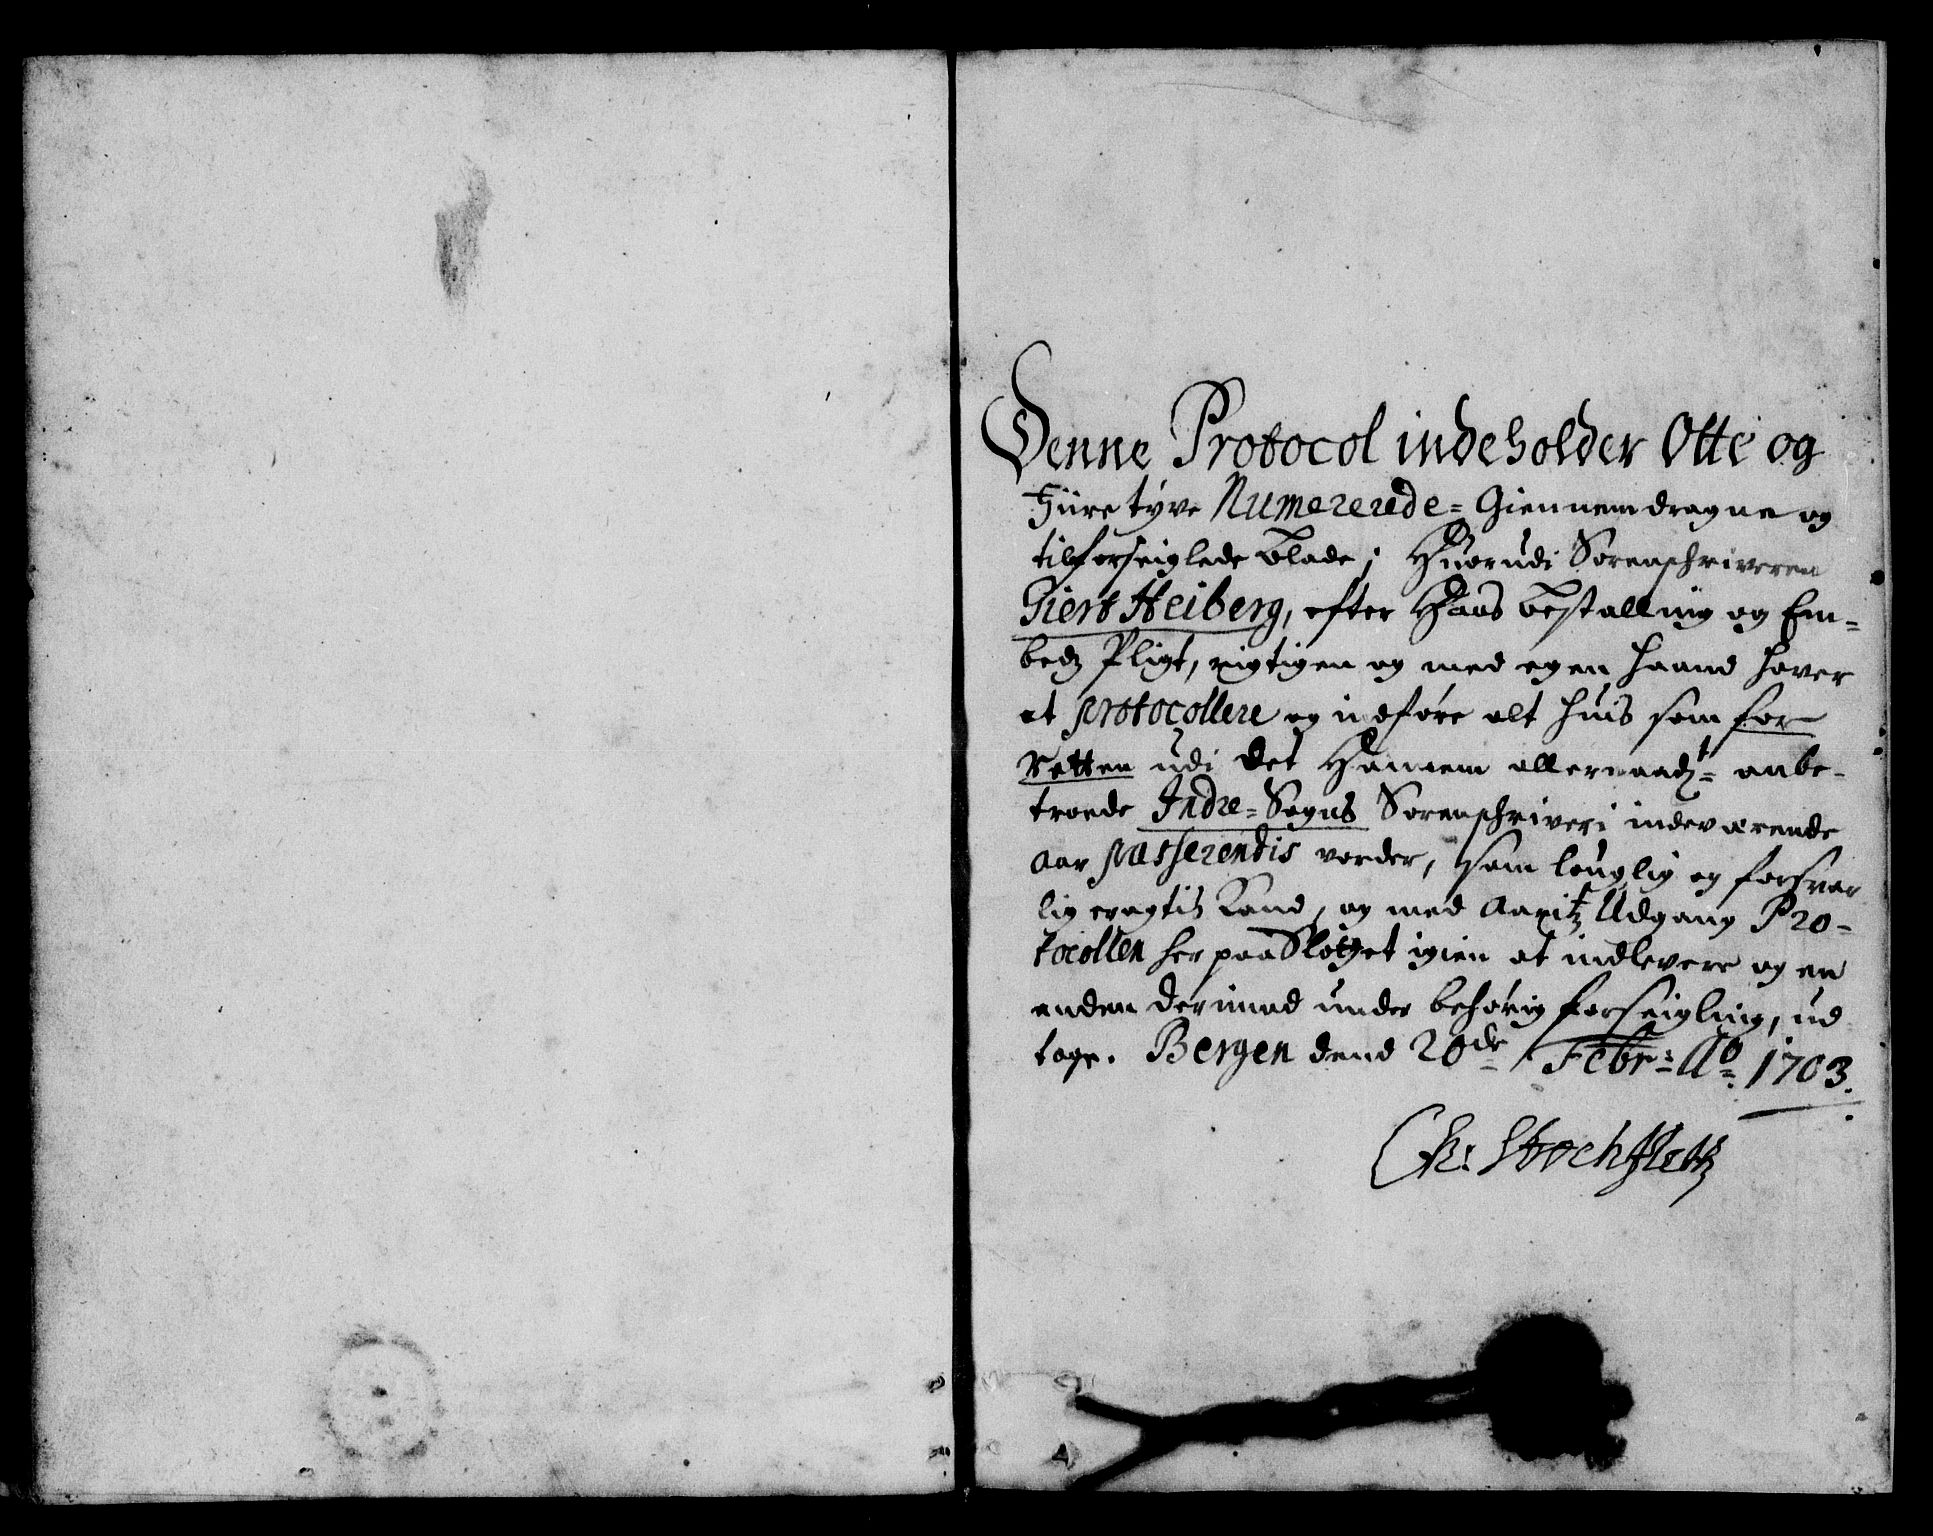 Denne Protocol indeholder Otte og
Fiiretyve Numererede= Giennemdragne og
tilforseiglede blade, Huorudi Sorenschriveren
Giert Heiberg, efter Hans bestalling og Em=
bedz Pligt, rigtigen og med egen haand haver
at protocollere og indføre alt huis som for
Retten udi det Hannem allernaadt= anbe-
troede Indre= Sogns Sorenschriveri indeværende
aar passerendis vorder, som louglig og forsvar
lig eragtis kand, og med aaritz Udgang Pro-
tocollen her paa Slotzet igien at indlevere og en
anden derimod under behørig forseigling, ud
tage. Bergen dend 20de Febr: Ao 1703.
Chr: Stochfleth